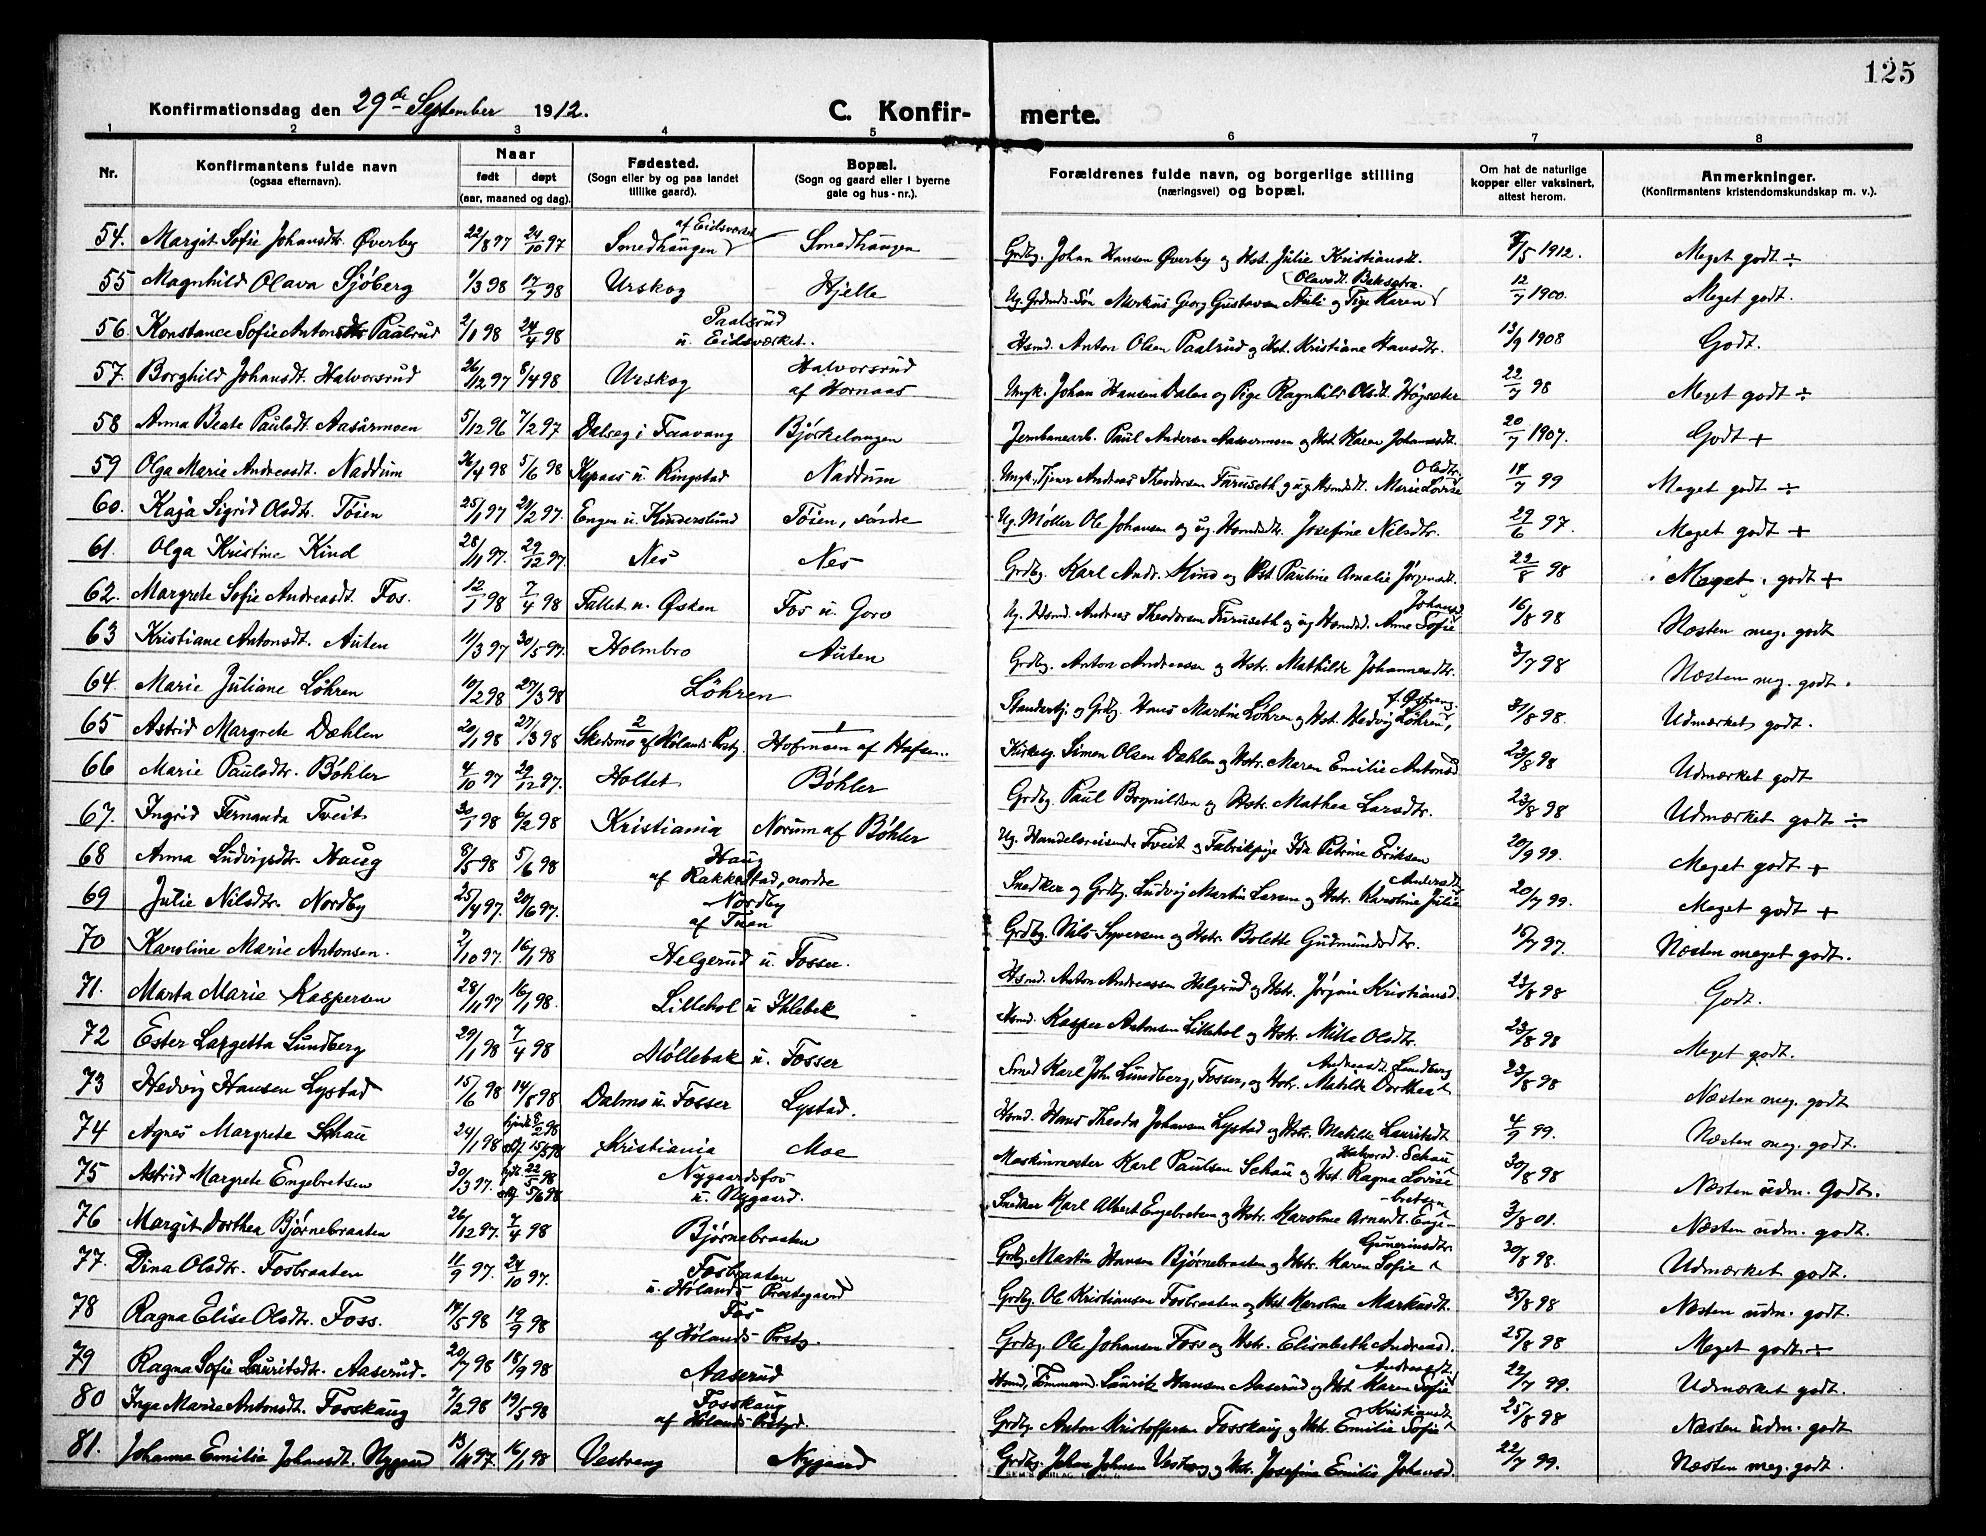 125
Konfirmationsdag den 29de September 1912.
C. Konfirmerte.
1 2 3 4 5 6 7 8
Nr.
Konfirmantens fulde navn
(ogsaa efternavn).
Naar
født døpt
(aar, maaned og dag).
Fødested.
(Sogn eller by og paa landet tillike gaard).
Bopæl.
(Sogn og gaard eller i byerne gate og hus-nr.).
Forældrenes fulde navn, og borgerlige stilling
(næringsvei) og bopæl.
Om hat de naturlige kopper eller vaksinert, attest herom.
Anmerkninger.
(Konfirmantens kristendomskundskap m. v.).
54. Margit Sofie Johansdtr. Øverby 22/8 97 24/10 97 Smedhaugen af Eidsverket Smedhaugen Grdbr. Johan Hansen Øverby og Hst. Julie Kristiansdt. /5 1912. Meget godt ÷
55 Magnhild Olava Sjøberg 1/3 98 17/7 98 Urskog Hjelle Ug. Grdmds. Søn Markus Georg Gustavsen Auli og Pige Karen Olavsdt. 12/7 1900. Meget godt.
56 Konstance Sofie Antonsdtr Paalsrud 2/1 98 24/4 98 Paalsrud u. Eidsverket. Hsmd. Anton Olsen Paalsrud og Hst. Kristiane Hansdtr. 13/9 1908 Godt.
57. Borghild Johansdt. Halvorsrud 26/12 97 8/4 98 Urskog Halvorsrud af Hornaas Ungk. Johan Hansen Dalen og Pige Ragnhild Olsdt. Høgsæter 22/7 98 Meget godt ÷
58 Anna Beate Paulsdt. Aasarmoen 5/12 96 7/2 97 Dalseg i Foavang Bjørkelangen Jernbanearb. Paul Andersen Aasermoen og Hst. Karen Johannesdt. 20/7 1907. Godt +
59 Olga Marie Andreasdt. Naddum 26/4 98 5/6 98 u. Ringstad Naddum Ungk., Tjener Andreas Theodorsen Furuseth og ug. Hsmdsdt. Marie Lovise Olsdtr. 17/7 99 Meget godt ÷
60. Kaja Sigrid Olsdtr. Tøien 25/1 97 21/2 97. Engen u. Kinderslund Tøien, søndre Ug. Møller Ole Johansen og ug. Hsmdsdtr. Josefine Nilsdtr. 29/6 97. Meget godt +
61. Olga Kristine Kind 28/11 97. 29/12 97. Nes Nes Grdbg. Karl Andr. Kind og Hst. Pauline Amalie Jørgensdt. 22/8 98 Meget godt +
62. Margrete Sofie Andreasdt. Fos. 12/1 98 7/4 98 Fallet u. Øsken Fos u. Goro Ug. Hsmd. Andreas Theodorsen Furuseth og ug Hsmdsd. Anne Sofie Johansd 16/8 98 Næsten meg. godt
63 Kristiane Antonsdt. Auten 11/3 97 30/5 97. Holmbro Auten Grdbg. Anton Andreassen og Hstr. Mathilde Johannesdtr. 3/7 98 Næsten meg. godt.
64. Marie Juliane Løhren 10/2 98 27/3 98 Løhren Standertj. og Grdbg. Hans Martin Løhren og Hst. Hedvig Løhren, f. Østreng. 31/8 98. Udmærket godt.
65 Astrid Margrete Dæhlen 20/1 98 27/3 98 Skedsmo 2 af Hølands Prstg. Hofmoen 1 af Hofsen.. Kirkesg. Simen Olsen Dæhlen og Hstr. Maren Emilie Antonsd 23/8 98 Udmærket godt
66 Marie Paulsdtr. Bøhler 4/10 97 29/12 97. Holtet Bøhler Grdbg. Paul Bognildsen og Hstr. Mathea Larsdtr. 23/8 98 Udmærket godt ÷
67. Ingrid Fernanda Tveit 30/1 98 6/2 98 Kristiania Norum af Bøhler Ug. Handelsreisende Tveit og Fabrikpige Ida Petrine Eriksen 20/9 99. Meget godt +
68 Anna Ludvigsdtr. Haug 8/5 98 5/6 98 Haug af Rakkestad, nordre Snedker og Grdbg. Ludvig Martin Larsen og Hstr. Karoline Julie Andersdt 20/7 99. Meget godt +
69 Julie Nilsdtr. Nordby 25/4 97. 20/6 97. Nordby af Tøien Grdbg. Nils Syversen og Hstr. Bolette Gudmundsdtr. 15/7 97. Næsten meget godt.
70 Karoline Marie Antonsen. 2/10 97. 16/1 98 Helgerud u. Fosser. Hsmd. Anton Andreassen Helgerud og Hstr. Jørgine Kristiansd. 23/8 98 Godt.
71. Marta Marie Kaspersen 28/11 97 16/1 98. Lillehol u Ihlebek Hsmd. Kasper Antonsen Lillehol og Hstr. Milla Olsdtr. 23/8 98 Meget godt.
72 Ester Largetta Lundberg 29/1 98 7/4 98 Møllebak u. Fosser Smed Karl Joh. Lundberg, Fosser, og Hstr. Matilde Dorthea Andreasdt. Lundberg 23/8 98 Næsten meg. godt
73 Hedvig Hansen Lystad 15/6 98 14/8 98 Dalmo u. Fosser Lystad. Hsmd. Hans Theodor Johansen Lystad og Hstr. Matilde Lauritsdt 4/9 99. Næsten meg. godt.
74 Agnes Margrete Schau 24/1 98 hjemd. 5/2 98 15/5 98 Kristiania Moe Maskinmester Karl Paulsen Schau og Hst. Ragna Lovise Halvorsd. Schau 30/8 98 Næsten udm. Godt.
75 Astrid Margrete Engebretsen 30/3 97. 22/5 98 5/6 98 Nygaardsfos u. Nygaard. Snedker Karl Albert Engebretsen og Hstr. Karoline Arnesdt. Engebretsen 3/8 01. Næsten udm. godt.
76 Margit Dorthea Bjørnebraaten 26/12 97. 7/4 98 Bjørnebraaten Grdbg. Martin Hansen Bjørnebraaten og Hstr. Karen Sofie Gunerinsdtr. 30/8 98. Udmærket godt.
77. Dina Olsdtr. Fosbraaten 11/9 97. 24/10 97. Fosbraaten u. Hølands Prestegaard Grdbg. Ole Kristiansen Fosbraaten og Hst. Karoline Markusdt. 25/8 98 Næsten udm. godt.
78 Ragna Elise Olsdtr. Foss. 14/5 98 12/9 98 Fos af Hølands Prstg. Grdbg. Ole Johansen Foss og Hstr. Elisabeth Andreasd. 25/8 98 Meget godt ÷
79 Ragna Sofie Lauritsdtr. Aaserud. 20/7 98 18/9 98 Aaserud Hsmd., Tømmerm. Lauritz Hansen Aaserud og Hst. Karen Sofie Andreasdt. 22/7 99. Udmærket godt.
80 Inga Marie Antonsdt. Fosskaug 7/2 98 19/5 98 Fosskaug af Hølands Prstgd. Grdbg. Anton Kristoffersen Fosskaug og Hstr. Emilie Sofie Kristiansdt 25/8 98 Næsten udm. godt
81. Johanne Emilie Johansdt. Nygaard 13/11 97. 16/1 98 Vestreng Nygaard Grdbg. Johan Johnsen Vestreng og Hstr. Josefine Emilie Johansd. 22/7 99. Næsten meg. godt.